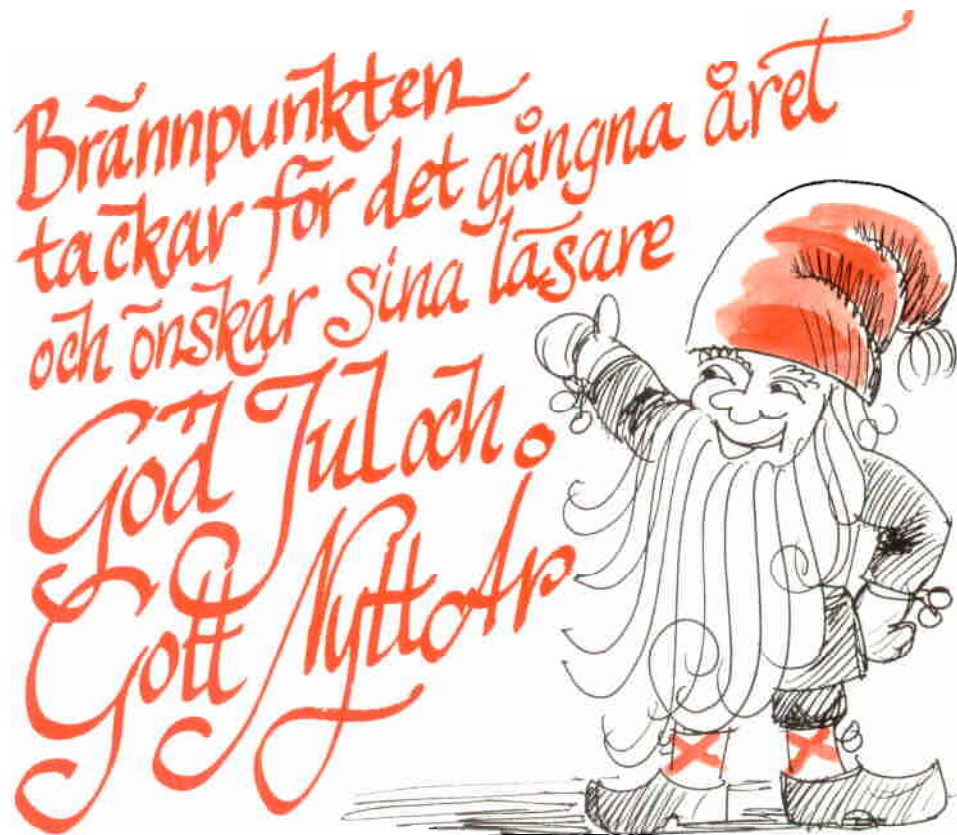 Brännpunkten
tackar för det gångna året
och önskar sina läsare
God Jul och
Gott Nytt År